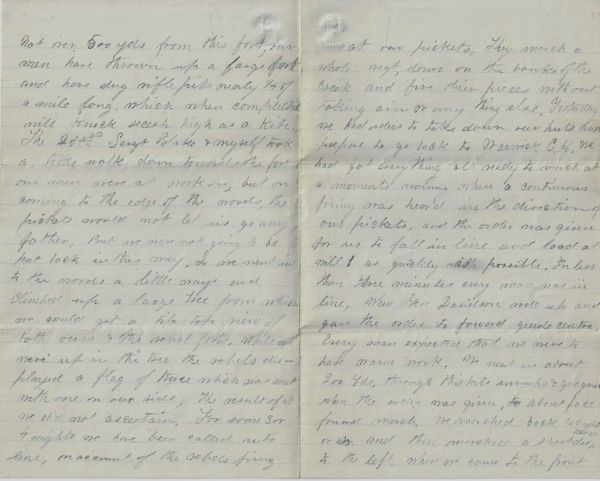 Not over 500 yds from this fort, our
men have thrown up a large fort
and have dug rifle pits nearly 1/4 of
a mile long, which when completed
will knock secesh high as a kite.
The 2d Sergt Blake & myself took
a little walk down towards the fort
our men were at work on, but on
coming to the edge of the woods, the
pickets would not let us go any
farther. But we were not going to be
put back in this way, so we went in
to the woods a little ways and
climbed up a large tree from which
we could get a tip top view of
both ours & the rebel forts. While we
were up in the tree the rebels dis-
played a flag of truce which was met
with one on our side, The result of it
we did not ascertain. For some 3 or
4 nights we have been called into
line, on account of the rebels firing
at our pickets. They march a
whole regt, down on the banks of the
creek and fire their pieces without
taking aim or any thing else. Yesterday
we had orders to take down our huts and
prepare to go back to Warwick C.H. We
had got everything all ready to march at
a moments' warning when a continuous
firing was heard in the direction of
our pickets, and the order was given
for us to fall in line and load at
will & as quickly as possible. In less
than three minutes every man was in
line, when Gen Davidson rode up and
gave the order to forward guide centre.
Every man expected that we were to
have warm work. We went in about
200 yds, through thickets swamps &
when the order was given, to about face
forward march. We marched back
or so. and then marched a short dis,
to the left. when we came to the front